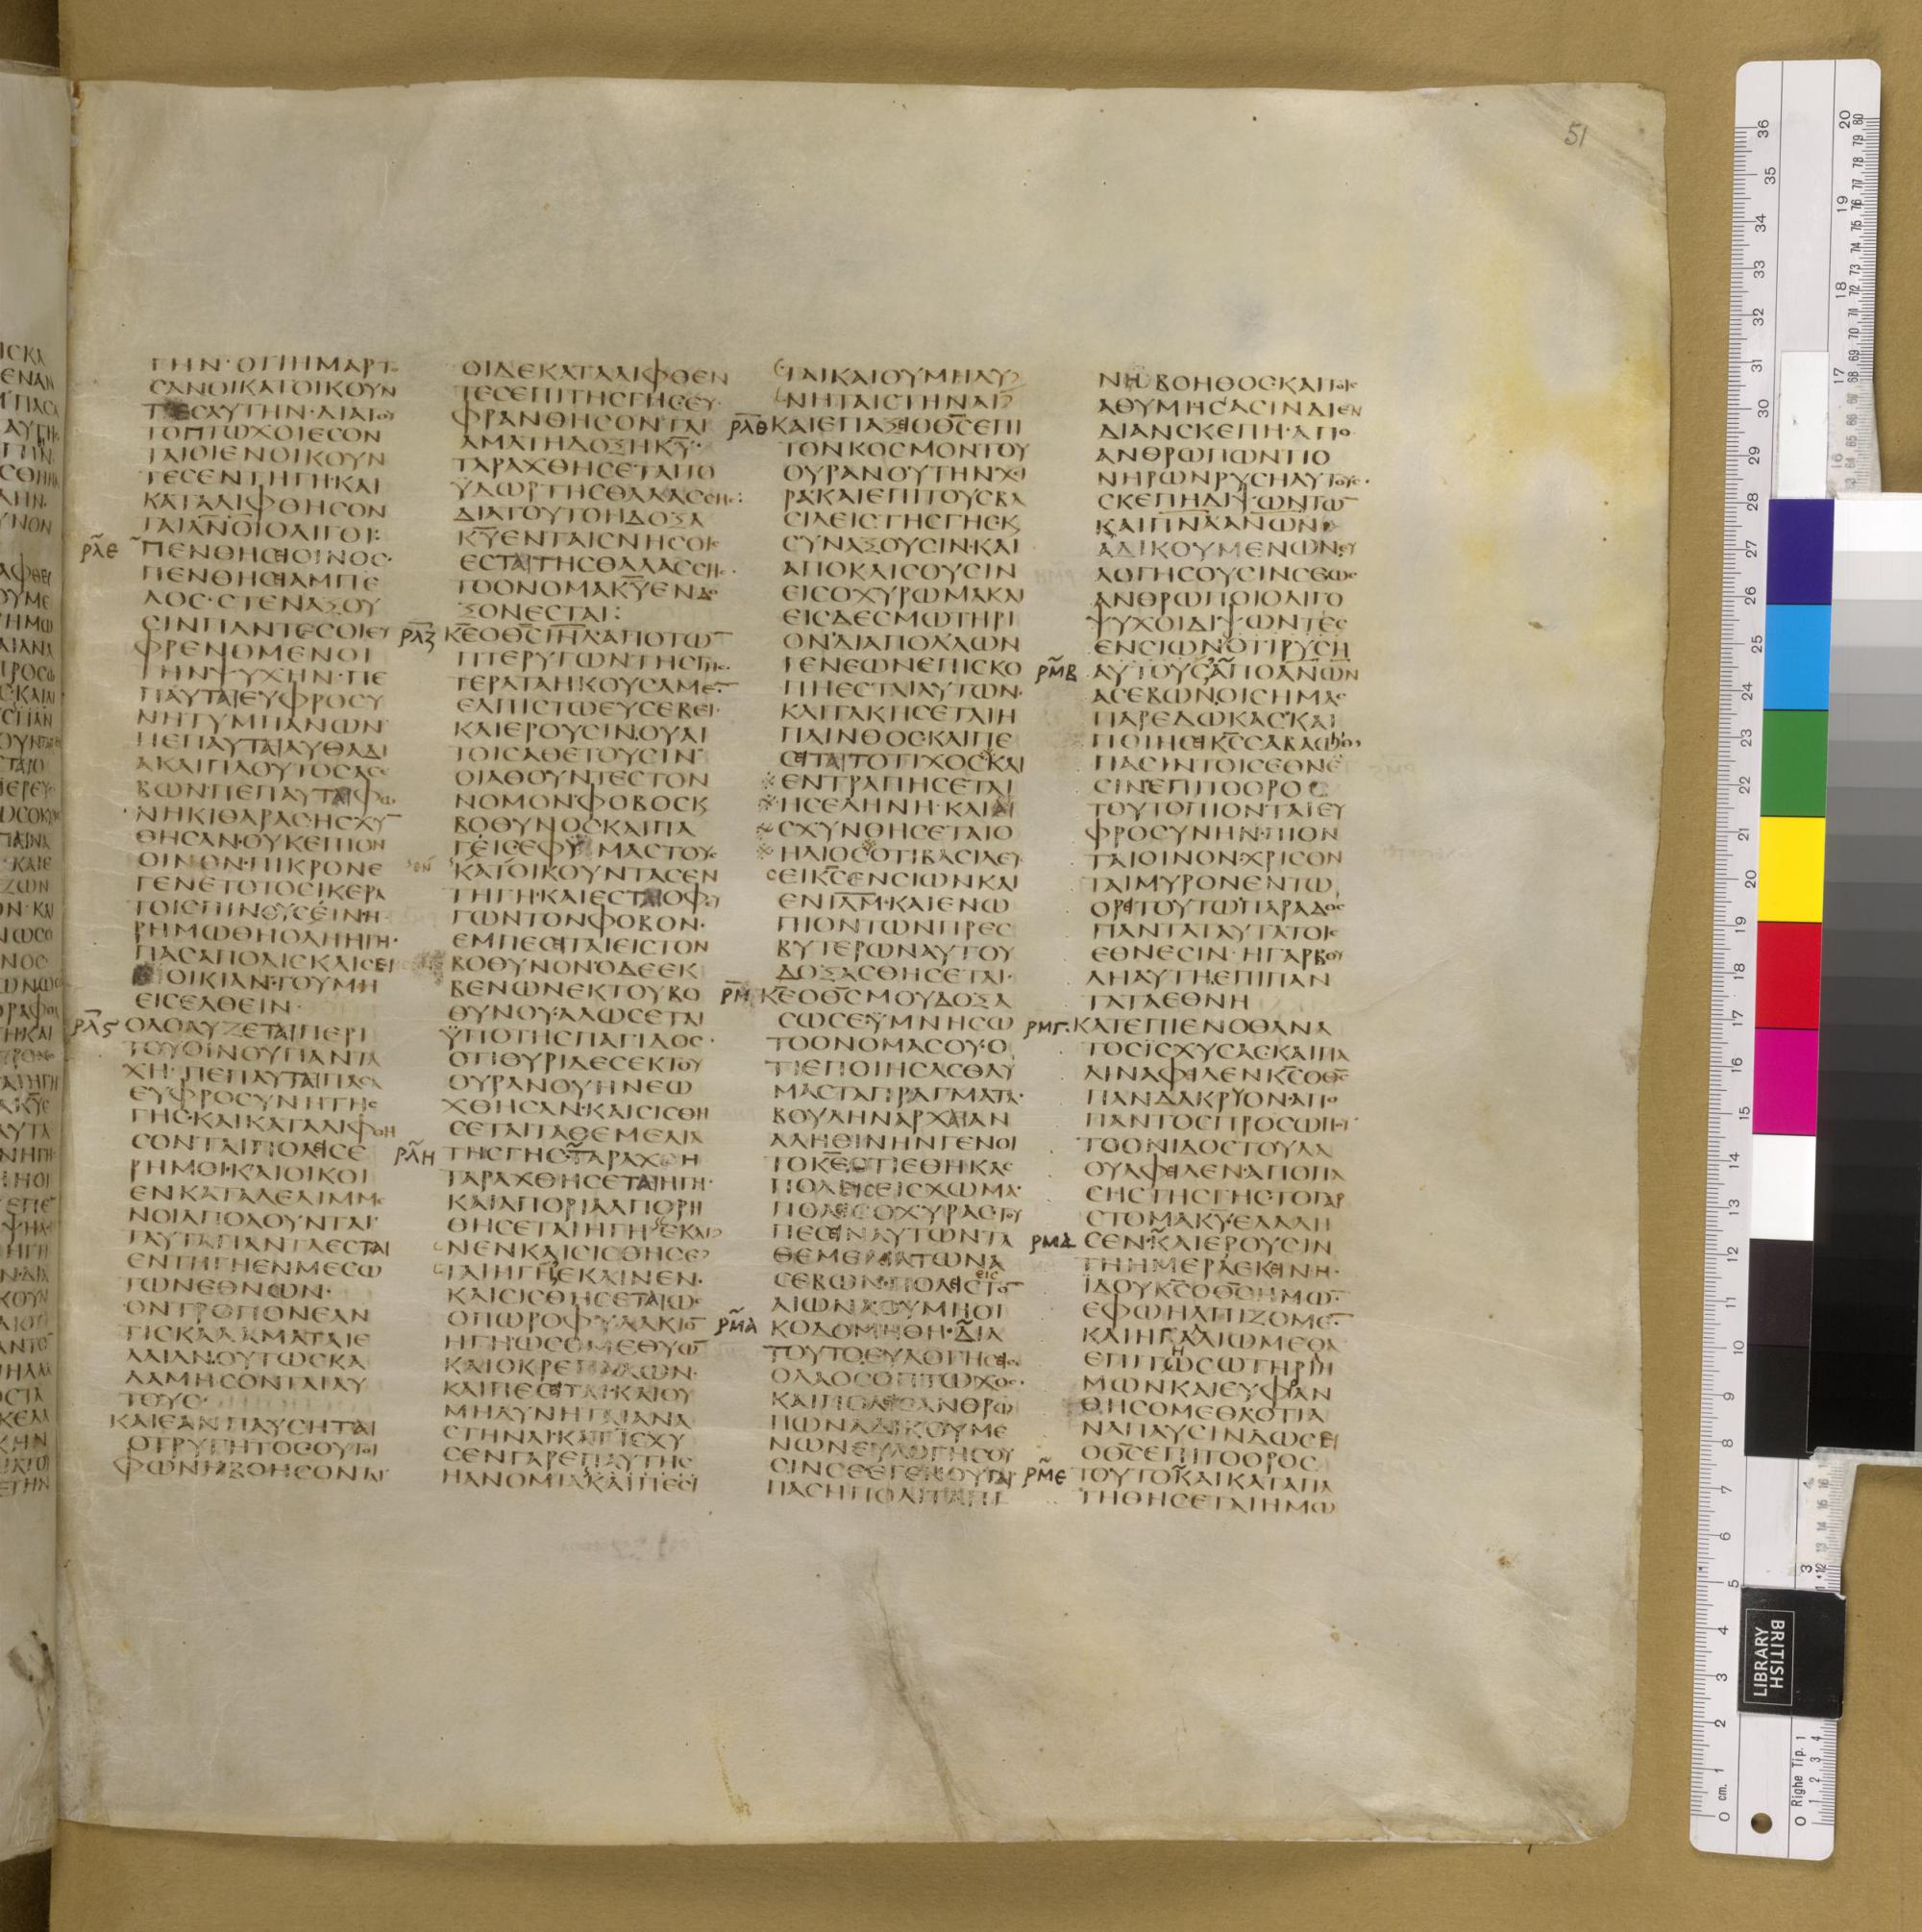 51
ΤΗΝ·ΟΤΙΗΜΑΡΤ
ΣΑΝΟΙΚΑΤΟΙΚΟΥΝ
ΤΕΣΑΥΤΗΝ·ΔΙΑΤΟΥ
ΤΟΠΤΩΧΟΙΕΣΟΝ
ΤΑΙΟΙΕΝΟΙΚΟΥΝ
ΤΕΣΕΝΤΗΓΗ·ΚΑΙ
ΚΑΤΑΛΙΦΘΗΣΟΝ
ΤΑΙΑΝΟΙΟΛΙΓΟΙ:
ΡΛΕ ΠΕΝΘΗΣΕΙΟΙΝΟΣ·
ΠΕΝΘΗΣΕΙΑΜΠΕ
ΛΟΣ·ΣΤΕΝΑΞΟΥ
ΣΙΝΠΑΝΤΕΣΟΙΕΥ
ΦΡΕΝΟΜΕΝΟΙ
ΤΗΝΨΥΧΗΝ·ΠΕ
ΠΑΥΤΑΙΕΥΦΡΟΣΥ
ΝΗΤΥΜΠΑΝΩΝ
ΠΕΠΑΥΤΑΙΑΥΘΑΔΙ
ΑΚΑΙΠΛΟΥΤΟΣΑΣΕ
ΒΩΝΠΕΠΑΥΤΑΙΦΩ
ΝΗΚΙΘΑΡΑΣΗΣΧΥ
ΘΗΣΑΝ·ΟΥΚΕΠΙΟΝ
ΟΙΝΟΝ·ΠΙΚΡΟΝΕ
ΓΕΝΕΤΟΤΟΣΙΚΕΡΑ
ΤΟΙΣΠΙΝΟΥΣΕΙΝΗ
ΡΗΜΩΘΗΟΛΗΗΓΗ·
ΠΑΣΑΠΟΛΙΣΚΛΙΣΕΙ
ΟΙΚΙΑΝ·ΤΟΥΜΗ
ΕΙΣΕΛΘΕΙΝ·
ΡΛϚ ΟΛΟΛΥΖΕΤΑΙΠΕΡΙ
ΤΟΥΟΙΝΟΥΠΑΝΤΑ
ΧΗ·ΠΕΠΑΥΤΑΙΠΑΣΑ
ΕΥΦΡΟΣΥΝΗΤΗΣ
ΓΗΣ·ΚΑΙΚΑΤΑΛΙΦΘΗ
ΣΟΝΤΑΙΠΟΛΕΙΣΕ
ΡΗΜΟΙ·ΚΑΙΟΙΚΟΙ
ΕΝΚΑΤΑΛΕΛΙΜΜΕ
ΝΟΙΑΠΟΛΟΥΝΤΑΙ·
ΤΑΥΤΑΠΑΝΤΑΕΣΤΑΙ
ΕΝΤΗΓΗΕΝΜΕΣΩ
ΤΩΝΕΘΝΩΝ·
ΟΝΤΡΟΠΟΝΕΑΝ
ΤΙΣΚΑΛΑΜΑΤΑΙΕ
ΛΑΙΑΝ·ΟΥΤΩΣΚΑ
ΛΑΜΗΣΟΝΤΑΙΑΥ
ΤΟΥΣ·
ΚΑΙΕΑΝΠΑΥΣΗΤΑΙ
ΟΤΡΥΓΗΤΟΣΟΥΤΟΙ
ΦΩΝΗΒΟΗΣΟΝΤΑΙ
ΟΙΔΕΚΑΤΑΛΙΦΘΕΝ
ΤΕΣΕΠΙΤΗΣΓΗΣΕΥ
ΦΡΑΝΘΗΣΟΝΤΑΙ
ΑΜΑΤΗΔΟΞΗΚΥ·
ΤΑΡΑΧΘΗΣΕΤΑΙΤΟ
ΥΔΩΡΤΗΣΘΑΛΑΣΣΗΣ:
ΔΙΑΤΟΥΤΟΗΔΟΞΑ
ΚΥΕΝΤΑΙΣΝΗΣΟΙΣ
ΕΣΤΑΙΤΗΣΘΑΛΑΣΣΗΣ·
ΤΟΟΝΟΜΑΚΥΕΝΔΟ
ΞΟΝΕΣΤΑΙ:
ΡΛΖ ΚΕΟΘΣΙΗΛΑΠΟΤΩ
ΠΤΕΡΥΓΩΝΤΗΣΓΗΣ
ΤΕΡΑΤΑΗΚΟΥΣΑΜΕ
ΕΛΠΙΣΤΩΕΥΣΕΒΕΙ·
ΚΑΙΕΡΟΥΣΙΝ·ΟΥΑΙ
ΤΟΙΣΑΘΕΤΟΥΣΙΝ
ΟΙΑΘΟΥΝΤΕΣΤΟΝ
ΝΟΜΟΝ·ΦΟΒΟΣΚ
ΒΟΘΥΝΟΣΚΑΙΠΑ
ΓΕΙΣΕΦΥΜΑΣΤΟΥΣ
ΚΑΤΟΙΚΟΥΝΤΑΣΕΝ
ΤΗΓΗ·ΚΑΙΕΣΤΑΙΟΦΕΥ
ΓΩΝΤΟΝΦΟΒΟΝ·
ΕΜΠΕΣΕΙΤΑΙΕΙΣΤΟΝ
ΒΟΘΥΝΟΝΟΔΕΕΚ
ΒΕΝΩΝΕΚΤΟΥΒΟ
ΘΥΝΟΥ·ΑΛΩΣΕΤΑΙ
ΫΠΟΤΗΣΠΑΓΙΔΟΣ·
ΟΤΙΘΥΡΙΔΕΣΕΚΤΟΥ
ΟΥΡΑΝΟΥΗΝΕΩ
ΧΘΗΣΑΝ·ΚΑΙΣΙΣΘΗ
ΣΕΤΑΙΤΑΘΕΜΕΛΙΑ
ΡΛΗ ΤΗΣΓΗΣ·ΤΑΡΑΧΘΗ
ΤΑΡΑΧΘΗΣΕΤΑΙΗΓΗ·
ΚΑΙΑΠΟΡΙΑΑΠΟΡΗ
ΘΗΣΕΤΑΙΗΓΗΕΚΑΙ
ΝΕΝΚΑΙΣΙΣΘΗΣΕ
ΤΑΙΗΓΗΕΚΛΙΝΕΝ·
ΚΑΙΣΙΣΘΗΣΕΤΑΙΩΣ
ΟΠΩΡΟΦΥΛΑΚΙΟ
ΗΓΗΩΣΟΜΕΘΥΩ
ΚΑΙΟΚΡΕΠΑΛΩΝ·
ΚΑΙΠΕΣΕΙΤΑΙ·ΚΑΙΟΥ
ΜΗΔΥΝΗΤΑΙΑΝΑ
ΣΤΗΝΑΙ·ΚΑΤΙΣΧΥ
ΣΕΝΓΑΡΕΠΑΥΤΗΣ
ΗΑΝΟΜΙΑΚΑΙΠΕΣΙ
ΤΑΙΚΑΙΟΥΜΗΔΥ
ΝΗΤΑΙΣΤΗΝΑΙ
ΡΛΘ ΚΑΙΕΠΑΞΕΙΟΘΣΕΠΙ
ΤΟΝΚΟΣΜΟΝΤΟΥ
ΟΥΡΑΝΟΥΤΗΝΧΙ
ΡΑΚΑΙΕΠΙΤΟΥΣΒΑ
ΣΙΛΕΙΣΤΗΣΓΗΣ·Κ
ΣΥΝΑΞΟΥΣΙΝ·ΚΑΙ
ΑΠΟΚΛΙΣΟΥΣΙΝ
ΕΙΣΟΧΥΡΩΜΑΚΑΙ
ΕΙΣΔΕΣΜΩΤΗΡΙ
ΟΝ·ΔΙΑΠΟΛΛΩΝ
ΓΕΝΕΩΝΕΠΙΣΚΟ
ΠΗΕΣΤΑΙΑΥΤΩΝ·
ΚΑΙΤΑΚΗΣΕΤΑΙΗ
ΠΛΙΝΘΟΣ·ΚΑΙΠΕ
ΣΕΙΤΑΙΤΟΤΙΧΟΣΚΑΙ
ΕΝΤΡΑΠΗΣΕΤΑΙ
ΗΣΕΛΗΝΗ·ΚΑΙΑΙ
ΣΧΥΝΘΗΣΕΤΑΙΟ
ΗΛΙΟΣΟΤΙΒΑΣΙΛΕΥ
ΣΕΙΚΣΕΝΣΙΩΝΚΑΙ
ΕΝΙΛΜ·ΚΑΙΕΝΩ
ΠΙΟΝΤΩΝΠΡΕΣ
ΒΥΤΕΡΩΝΑΥΤΟΥ
ΔΟΞΑΣΘΗΣΕΤΑΙ·
ΡΜ ΚΕΟΘΣΜΟΥΔΟΞΑ
ΣΩΣΕ·ΫΜΝΗΣΩ
ΤΟΟΝΟΜΑΣΟΥ·Ο
ΤΙΕΠΟΙΗΣΑΣΘΑΥ
ΜΑΣΤΑΠΡΑΓΜΑΤΑ·
ΒΟΥΛΗΝΑΡΧΑΙΑΝ
ΑΛΗΘΙΝΗΝΓΕΝΟΙ
ΤΟΚΕΟΤΙΕΘΗΚΑΣ
ΠΟΛΕΙΣΕΙΣΧΩΜΑ·
ΠΟΛΕΙΣΟΧΥΡΑΣ·ΤΟΥ
ΠΕΣΕΙΝΑΥΤΩΝΤΑ
ΘΕΜΕΛΙΑΤΩΝΑ
ΣΕΒΩΝ·ΠΟΛΕΙΣΤΟ
ΑΙΩΝΑΟΥΜΗΟΙ
ΡΜΑ ΚΟΔΟΜΗΘΗ·ΔΙΑ
ΤΟΥΤΟΕΥΛΟΓΗΣΕΙ
ΟΛΑΟΣΟΠΤΩΧΟΣ·
ΚΑΙΠΟΛΕΙΣΑΝΘΡΩ
ΠΩΝΑΔΙΚΟΥΜΕ
ΝΩΝΕΥΛΟΓΗΣΟΥ
ΣΙΝΣΕ
ΠΑΣΗΠΟΛΙ
ΝΗΒΟΗΘΟΣΚΑΙΤΟΙΣ
ΑΘΥΜΗΣΑΣΙΝΔΙΕΝ
ΔΙΑΝΣΚΕΠΗ·ΑΠΟ
ΑΝΘΡΩΠΩΝΠΟ
ΝΗΡΩΝΡΥΣΗΑΥΤΟΥΣ·
ΣΚΕΠΗΔΙΨΩΝΤΩ
ΚΑΙΠΝΑΑΝΩΝ
ΑΔΙΚΟΥΜΕΝΩΝΕΥ
ΛΟΓΗΣΟΥΣΙΝΣΕΩΣ
ΑΝΘΡΩΠΟΙΟΛΙΓΟ
ΨΥΧΟΙΔΙΨΩΝΤΕΣ
ΕΝΣΙΩΝΟΤΙΡΥΣΗ
ΡΜΒ ΑΥΤΟΥΣΑΠΟΑΝΩΝ
ΑΣΕΒΩΝΟΙΣΗΜΑΣ
ΠΑΡΕΔΩΚΑΣ·ΚΑΙ
ΠΟΙΗΣΕΙΚΣΣΑΒΑΩΘ
ΠΑΣΙΝΤΟΙΣΕΘΝΕ
ΣΙΝΕΠΙΤΟΟΡΟΣ
ΤΟΥΤΟΠΙΟΝΤΑΙΕΥ
ΦΡΟΣΥΝΗΝ·ΠΙΟΝ
ΤΑΙΟΙΝΟΝ·ΧΡΙΣΟΝ
ΤΑΙΜΥΡΟΝΕΝΤΩ
ΟΡΕΙΤΟΥΤΩΠΑΡΑΔΟΣ
ΠΑΝΤΑΤΑΥΤΑΤΟΙΣ
ΕΘΝΕΣΙΝ·ΗΓΑΡΒΟΥ
ΛΗΑΥΤΗΕΠΙΠΑΝ
ΤΑΤΑΕΘΝΗ
ΡΜΓ ΚΑΤΕΠΙΕΝΟΘΑΝΑ
ΤΟΣΙΣΧΥΣΑΣ·ΚΑΙΠΑ
ΛΙΝΑΦΕΙΛΕΝΚΣΟΘΣ
ΠΑΝΔΑΚΡΥΟΝ·ΑΠΟ
ΠΑΝΤΟΣΠΡΟΣΩΠΟΥ
ΤΟΟΝΙΔΟΣΤΟΥΛΑ
ΟΥΑΦΕΙΛΕΝΑΠΟΠΑ
ΣΗΣΤΗΣΓΗΣ·ΤΟΓΑΡ
ΣΤΟΜΑΚΥ·ΕΛΑΛΗ
ΡΜΔ ΣΕΝ·ΚΑΙΕΡΟΥΣΙΝ
ΤΗΗΜΕΡΑΕΚΕΙΝΗ·
ΙΔΟΥΚΣΟΘΣΗΜΩ
ΕΦΩΗΛΠΙΖΟΜΕ
ΚΑΙΗΓΑΛΛΙΩΜΕΘΑ
ΕΠΙΤΩΣΩΤΗΡΙΗ
ΜΩΝΚΑΙΕΥΦΡΑΝ
ΘΗΣΟΜΕΘΑΟΤΙΑ
ΝΑΠΑΥΣΙΝΔΩΣΕΙ
ΟΘΣΕΠΙΤΟΟΡΟΣ
ΡΜΕ ΤΟΥΤΟΚΑΙΚΑΤΑΠΑ
ΤΗΘΗΣΕΤΑΙΗΜΩ
BRITISH
LIBRARY
0 cm. 1 2 3 4 5 6 7 8 9 10 11 12 13 14 15 16 17 18 19 20 21 22 23 24 25 26 27 28 29 30 31 32 33 34 35 36
0 Righe Tip. 1